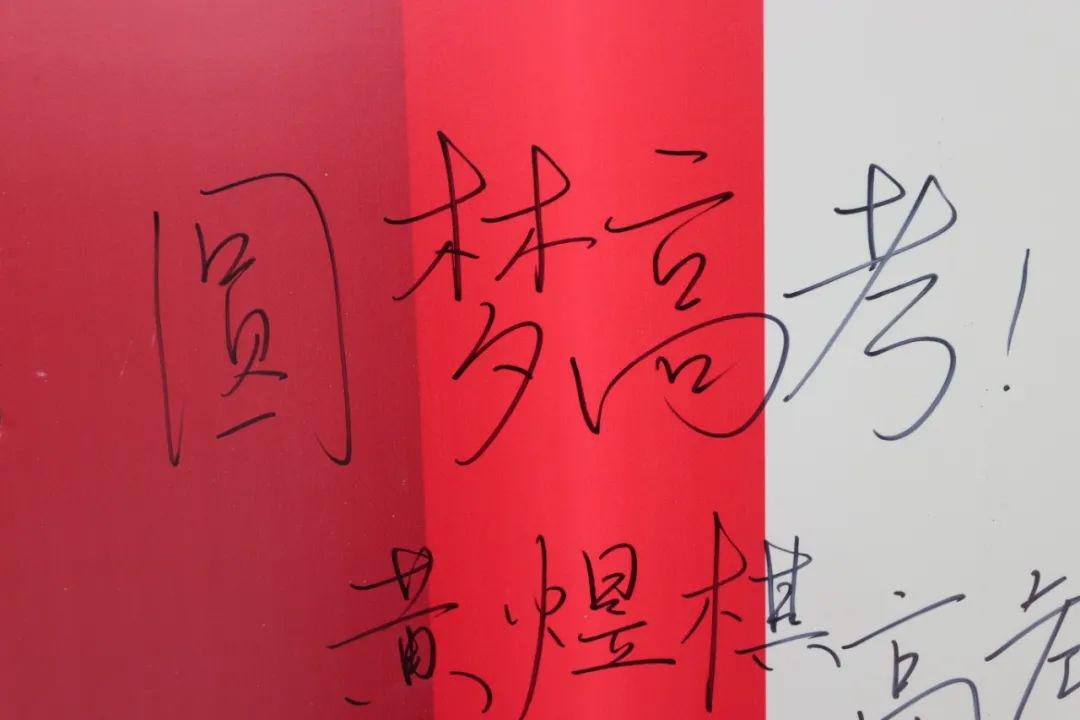 圆梦高考!
黄煜棋高考